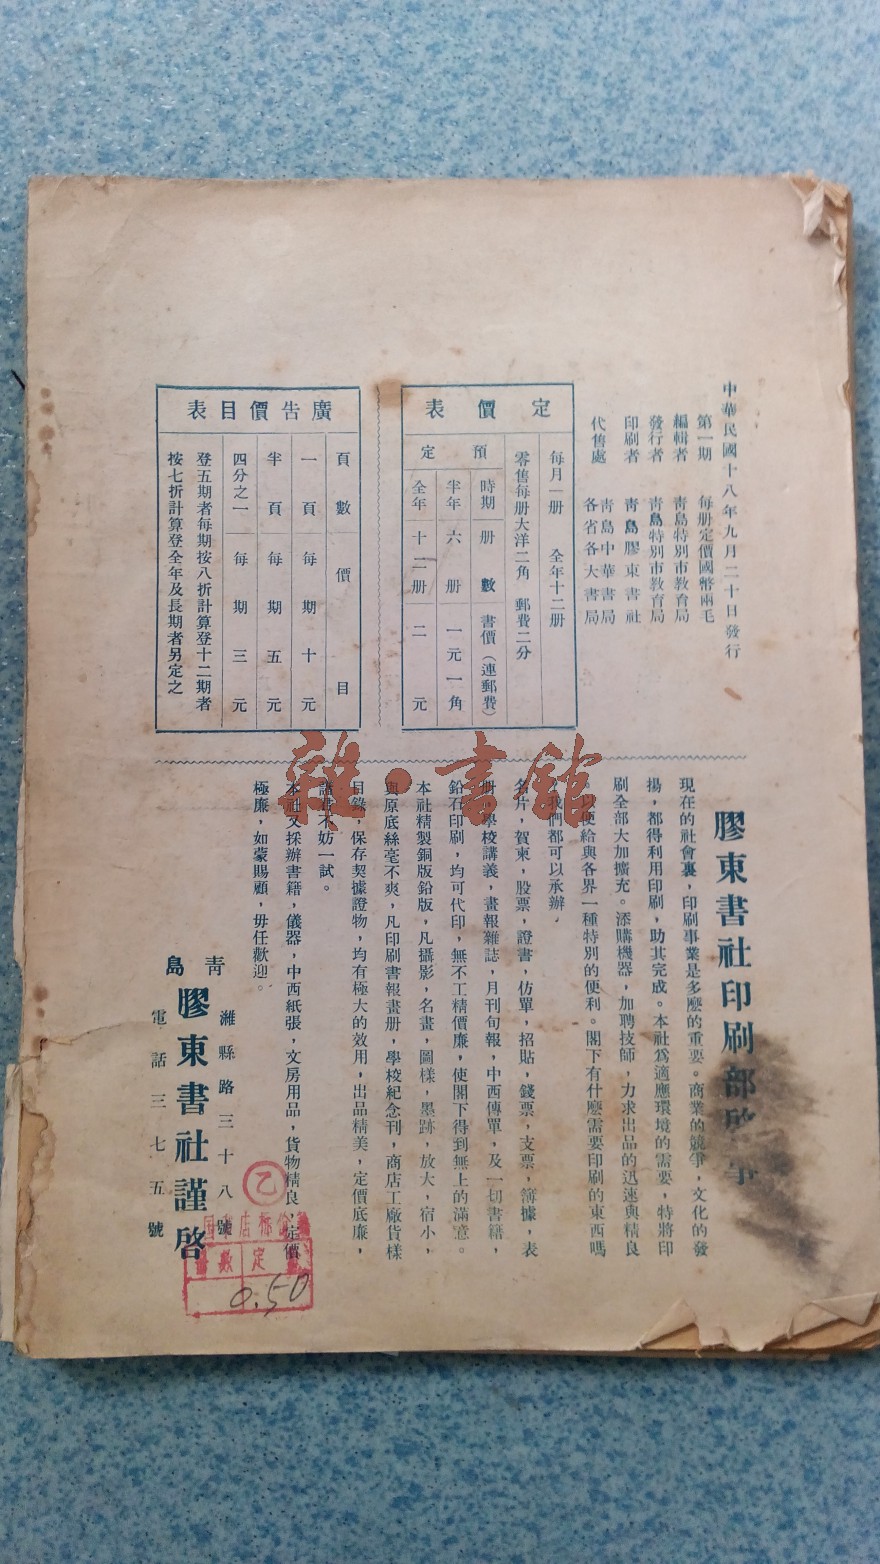 中華民國十八年九月二十日發行
第一期　每册定價國幣兩毛
編輯者　靑島特別市敎育局
發行者　靑島特別市敎育局
印刷者　靑島膠東書社
代售處　靑島中華書局
各省各大書局
定價表
每月一册　全年十二册
零售每册大洋二角　郵費二分
預定
時期　册數　書價（連郵費）
半年　六册　一元一角
全年　十二册　二元
廣告價目表
頁數　價目
一頁　每期十元
半頁　每期五元
四分之一　每期三元
登五期者每期按八折計算登十二期者
按七折計算登全年及長期者另定之
膠東書社印刷部啟事
現在的社會裏，印刷事業是多麽的重要。商業的競爭，文化的發
揚，都得利用印刷，助其完成。本社爲適應環境的需要，特將印
刷全部大加擴充。添購機器，加聘技師，力求出品的迅速與精良
以便給與各界一種特別的便利。閣下有什麽需要印刷的東西嗎
我們都可以承辦，
名片，賀柬，股票，證書，仿單，招貼，錢票，支票，簿據，表
册，學校講義，畫報雜誌，月刊旬報，中西傳單，及一切書籍，
鉛石印刷，均可代印，無不工精價廉，使閣下得到無上的滿意。
本社精製銅版鉛版，凡攝影，名畫，圖樣，墨跡，放大，宿小，
與原底絲毫不爽，凡印刷書報畫册，學校紀念刊，商店工廠貨樣
目錄，保存契據證物，均有極大的效用，出品精美，定價底廉，
諸君不妨一試。
本社又採辦書籍，儀器，中西紙張，文房用品，貨物精良，定價
極廉，如蒙賜顧，毋任歡迎。
靑島
濰縣路三十八號
膠東書社謹啓
電話三七五號
雜·書館
乙
定
0.50